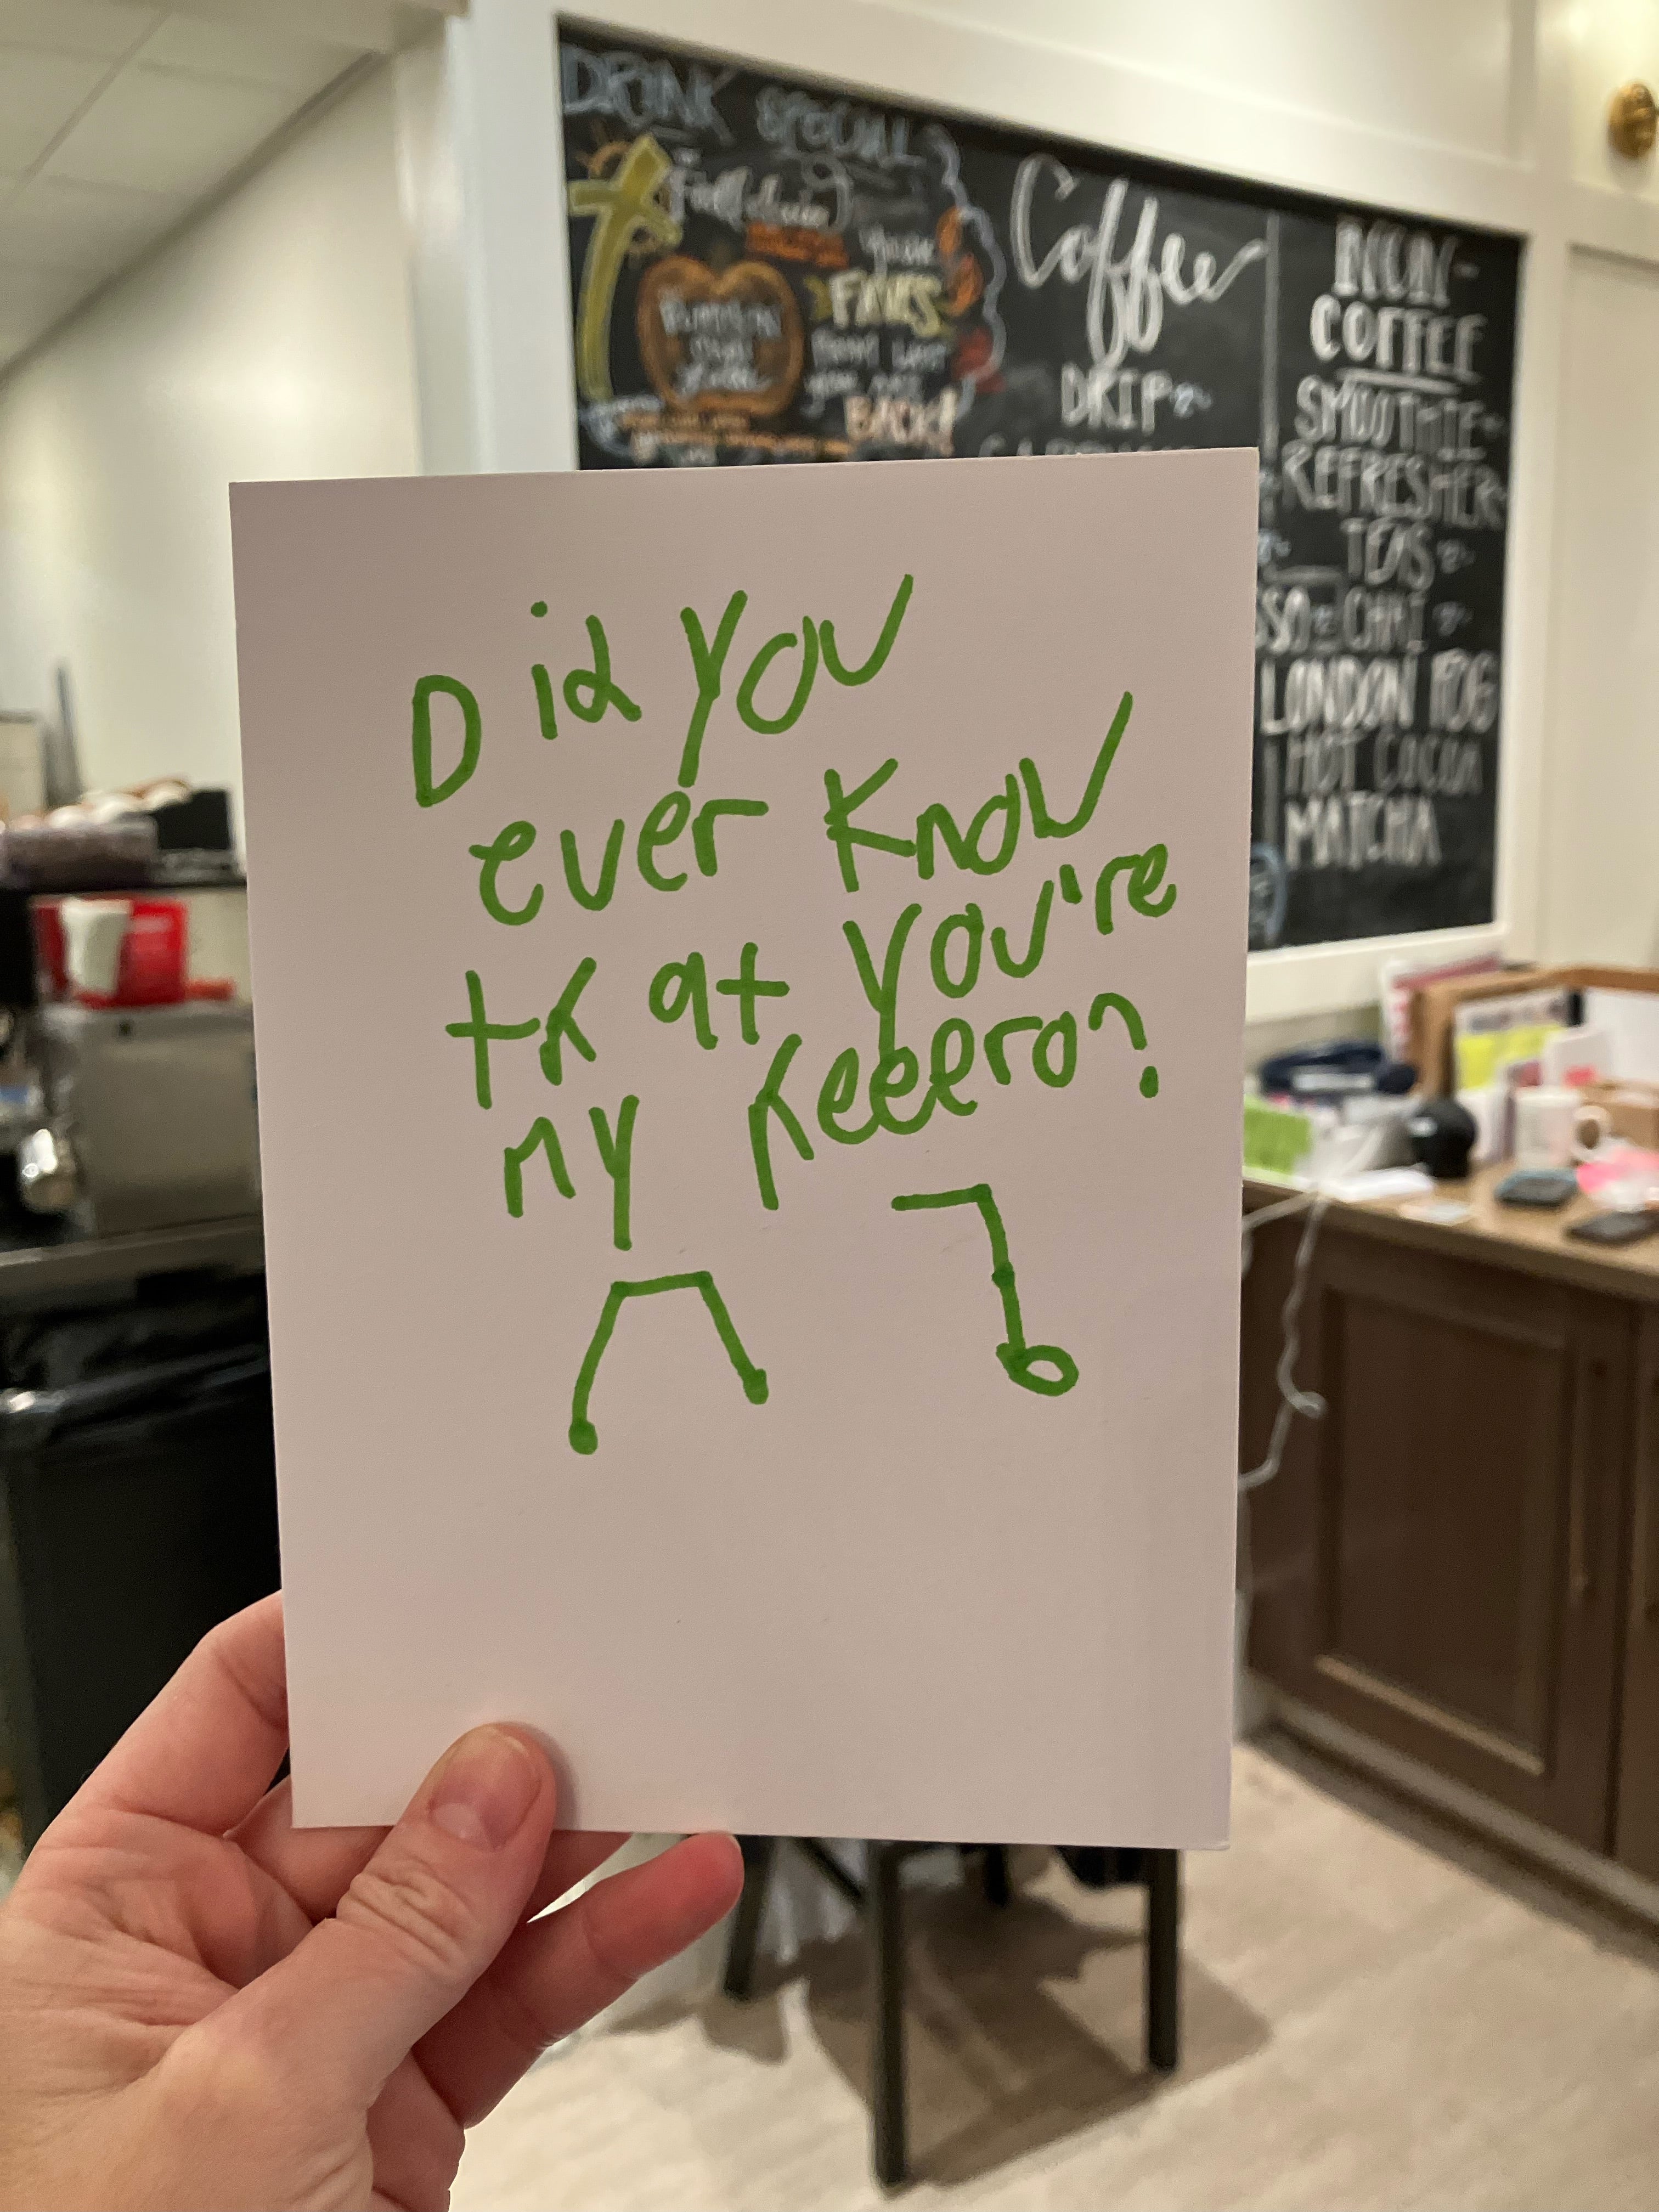 DRINK SPECIAL
Fall
your
FAVES
BACK!
Coffee
DRIP
NON-
COFFEE
SMOOTHIE
REFRESHER
TEAS
CHAI
LONDON FOG
HOT COCOA
MATCHA
Did you
ever know
that you're
my heeero?